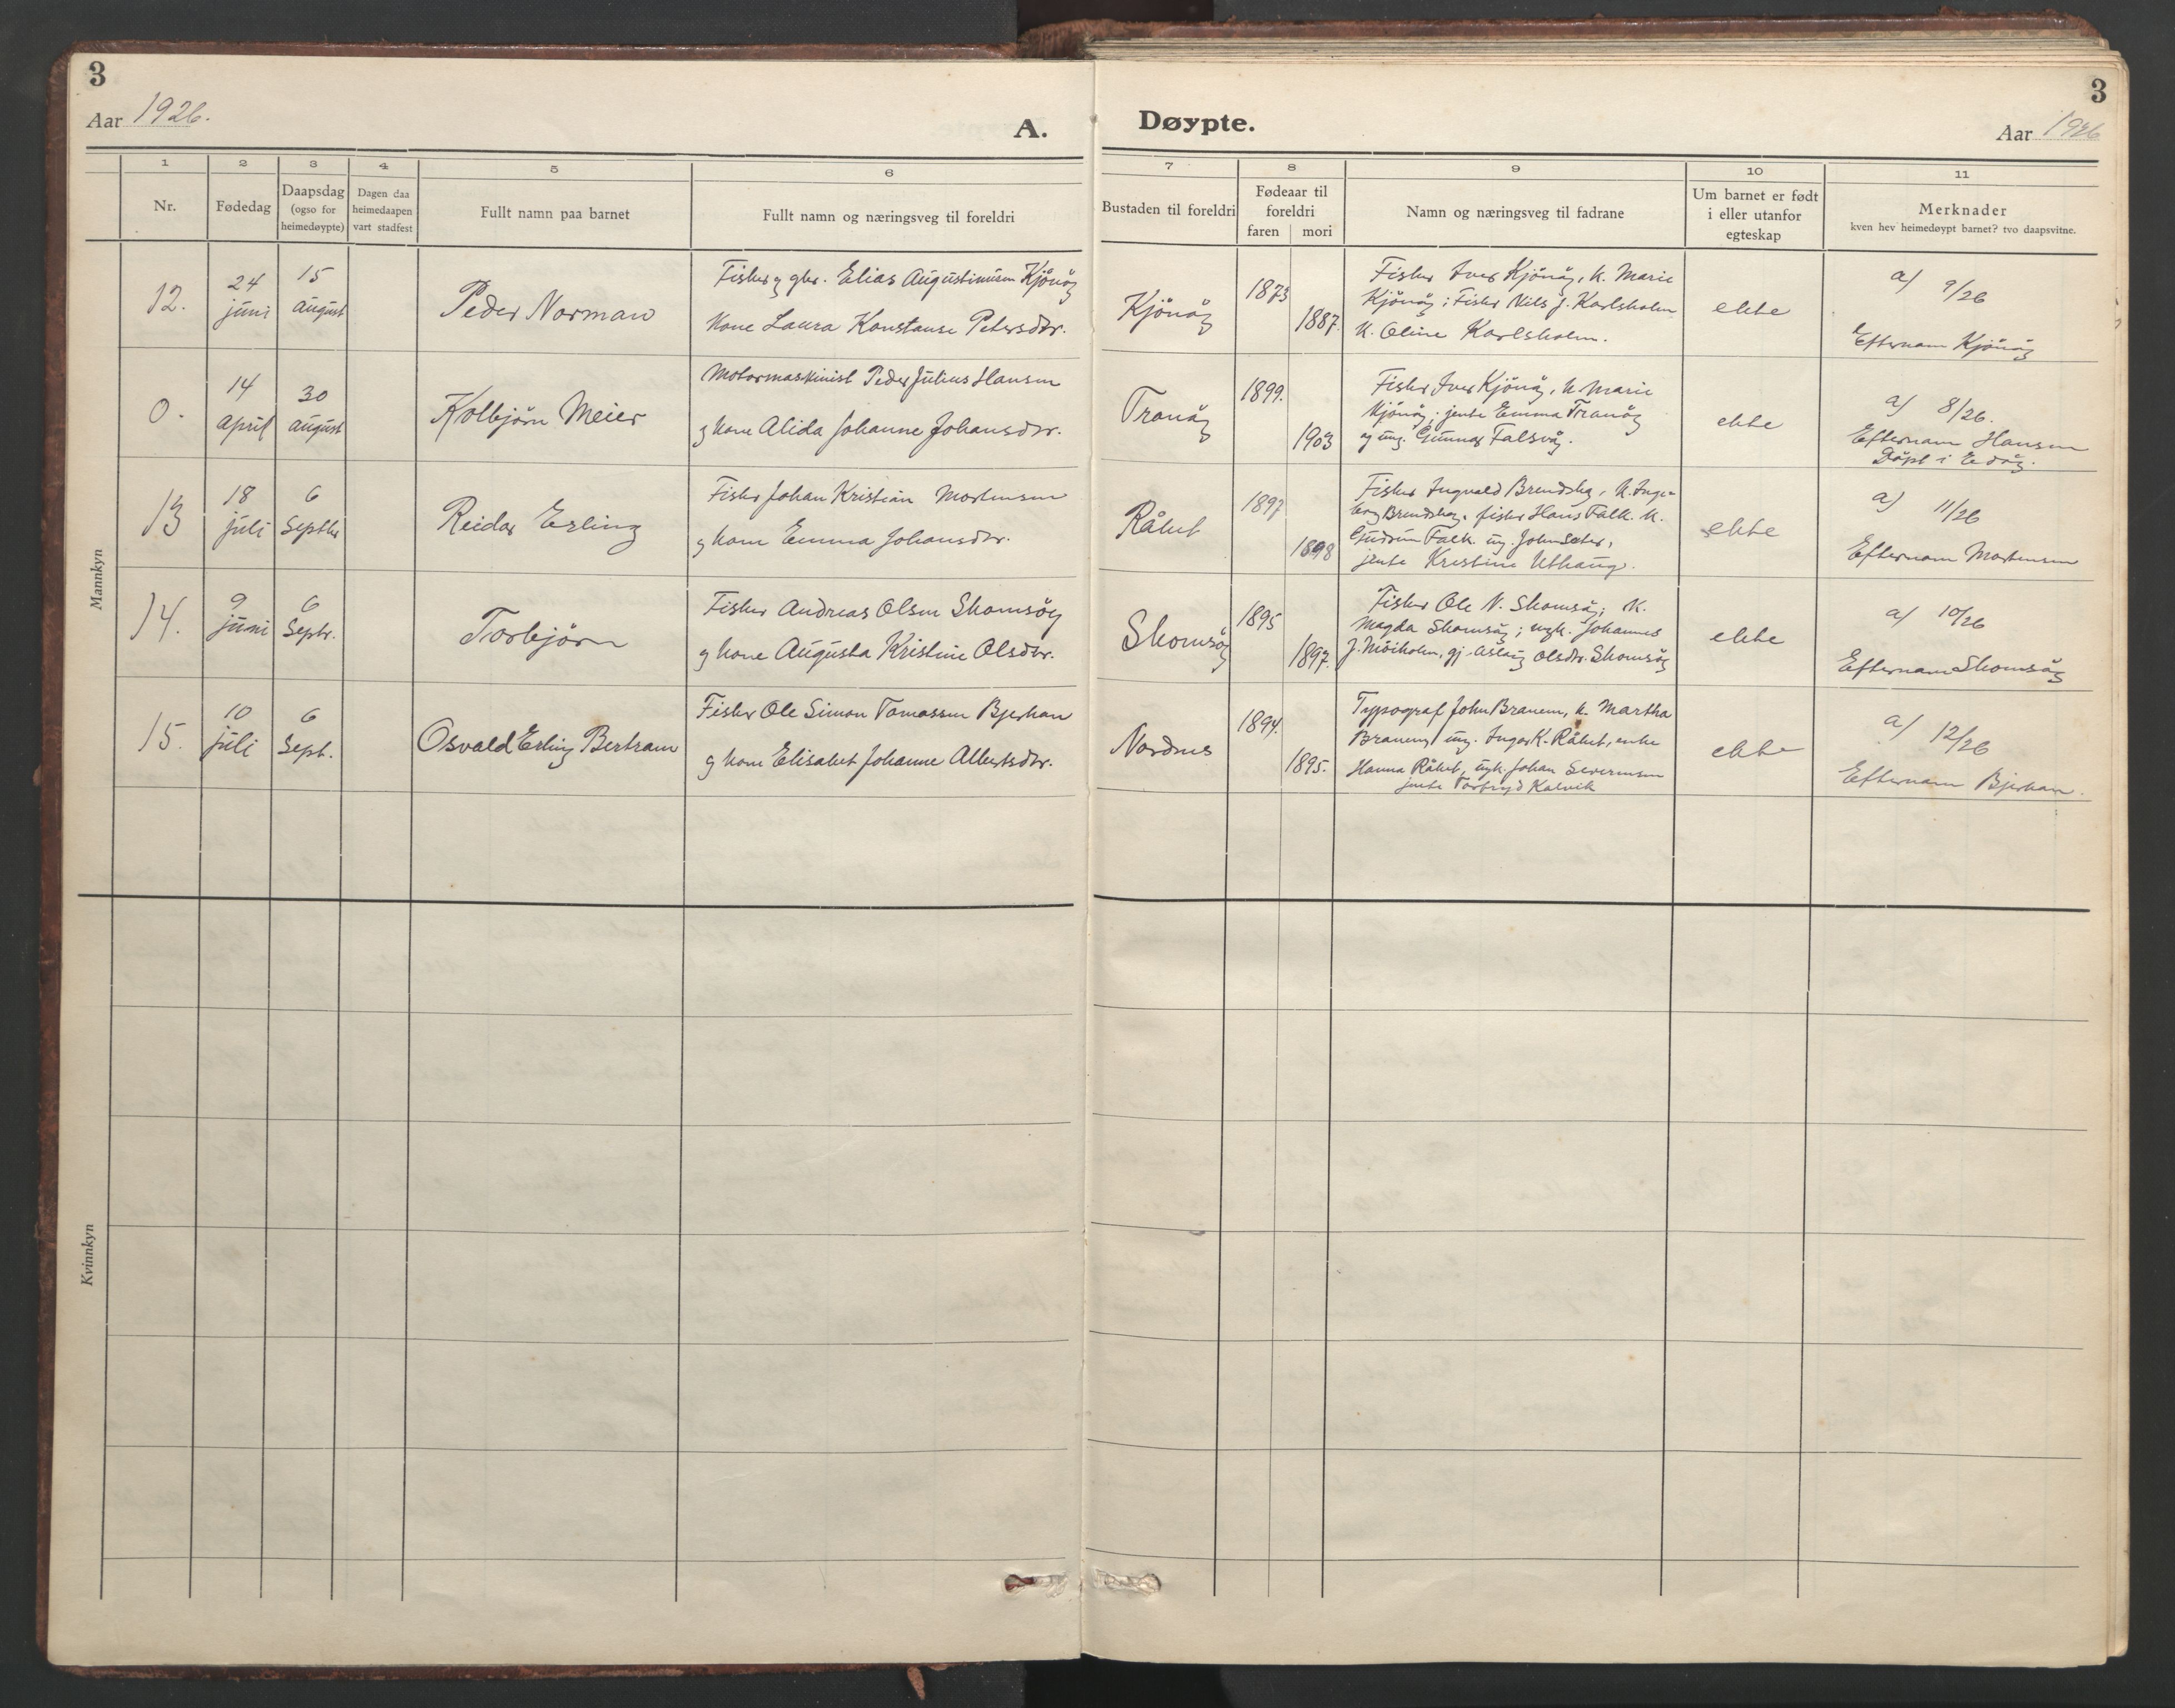 3
Aar 1926.
A.
Døypte.
3
Aar 1926
1
2
3
4
5
6
7
8
9
10
11
Nr.
Fødedag
Daapsdag
(ogso for
heimedøypte)
Dagen daa
heimedaapen
vart stadfest
Fullt namn paa barnet
Fullt namn og næringsveg til foreldri
Bustaden til foreldri
Fødeaar til
foreldri
faren
mori
Namn og næringsveg til fadrane
Um barnet er født
i eller utanfor
egteskap
Merknader
kven hev heimedøypt barnet? tvo daapsvitne.
Mannkyn
12.
24
juni
15
august
Peder Norman
Fisker og gbr. Elias Augustinusen Kjönöy
Kone Laura Konstanse Petersdtr.
Kjönöy
1873
1887.
Fisker Iver Kjönöy, k. Marie
Kjönöy; Fisker Nils J. Karlsholm
k. Oline Karlsholm.
ekte
a) 9/26
Efternam Kjönöy
0.
14
april
30
august
Kolbjörn Meier
Motormaskinist Peder Julius Hansen
og kone Alida Johanne Johansdtr.
Tranöy
1899.
1903
Fisker Iver Kjönöy, k. Marie
Kjönöy; jente Emma Tranöy
og ung. Gunnar Falsvåg.
ekte
a) 8/26.
Efternam Hansen
Döpt i Edöy.
13
18
juli
6
Septbr
Reidar Erling
Fisker Johan Kristian Mortensen
og kone Emma Johansdtr.
Råket
1897
1898
Fisker Ingvald Brendskag, k. Inge-
borg Brendskag, fisker Hans Falk. k.
Gudrun Falk. ug. John Seter,
jente Kristine Uthaug.
ekte
a) 11/26
Efternam Mortensen
14.
9
juni
6
Septr.
Torbjörn
Fisker Andreas Olsen Skomsöy
og kone Augusta Kristine Olsdtr.
Skomsöy
1895
1897.
Fisker Ole N. Skomsöy; k.
Magda Skomsöy; ungk. Johannes
J. Möiholm, gj. Aslaug Olsdtr. Skomsöy
ekte
a) 10/26
Efternam Skomsöy
15.
10
juli
6
Sept.
Osvald Erling Bertram
Fisker Ole Simon Tomassen Bjerkan
og kone Elisabet Johanne Albertsdtr.
Nordnes
1894.
1895.
Typograf John Branem, k. Martha
Branem, ung. Ingar K. Råket, enke
Hanna Råket, ugk. Johan Severinsen
jente Torfryd Kalvik
ekte
a) 12/26
Efternam Bjerkan.
Kvinnkyn